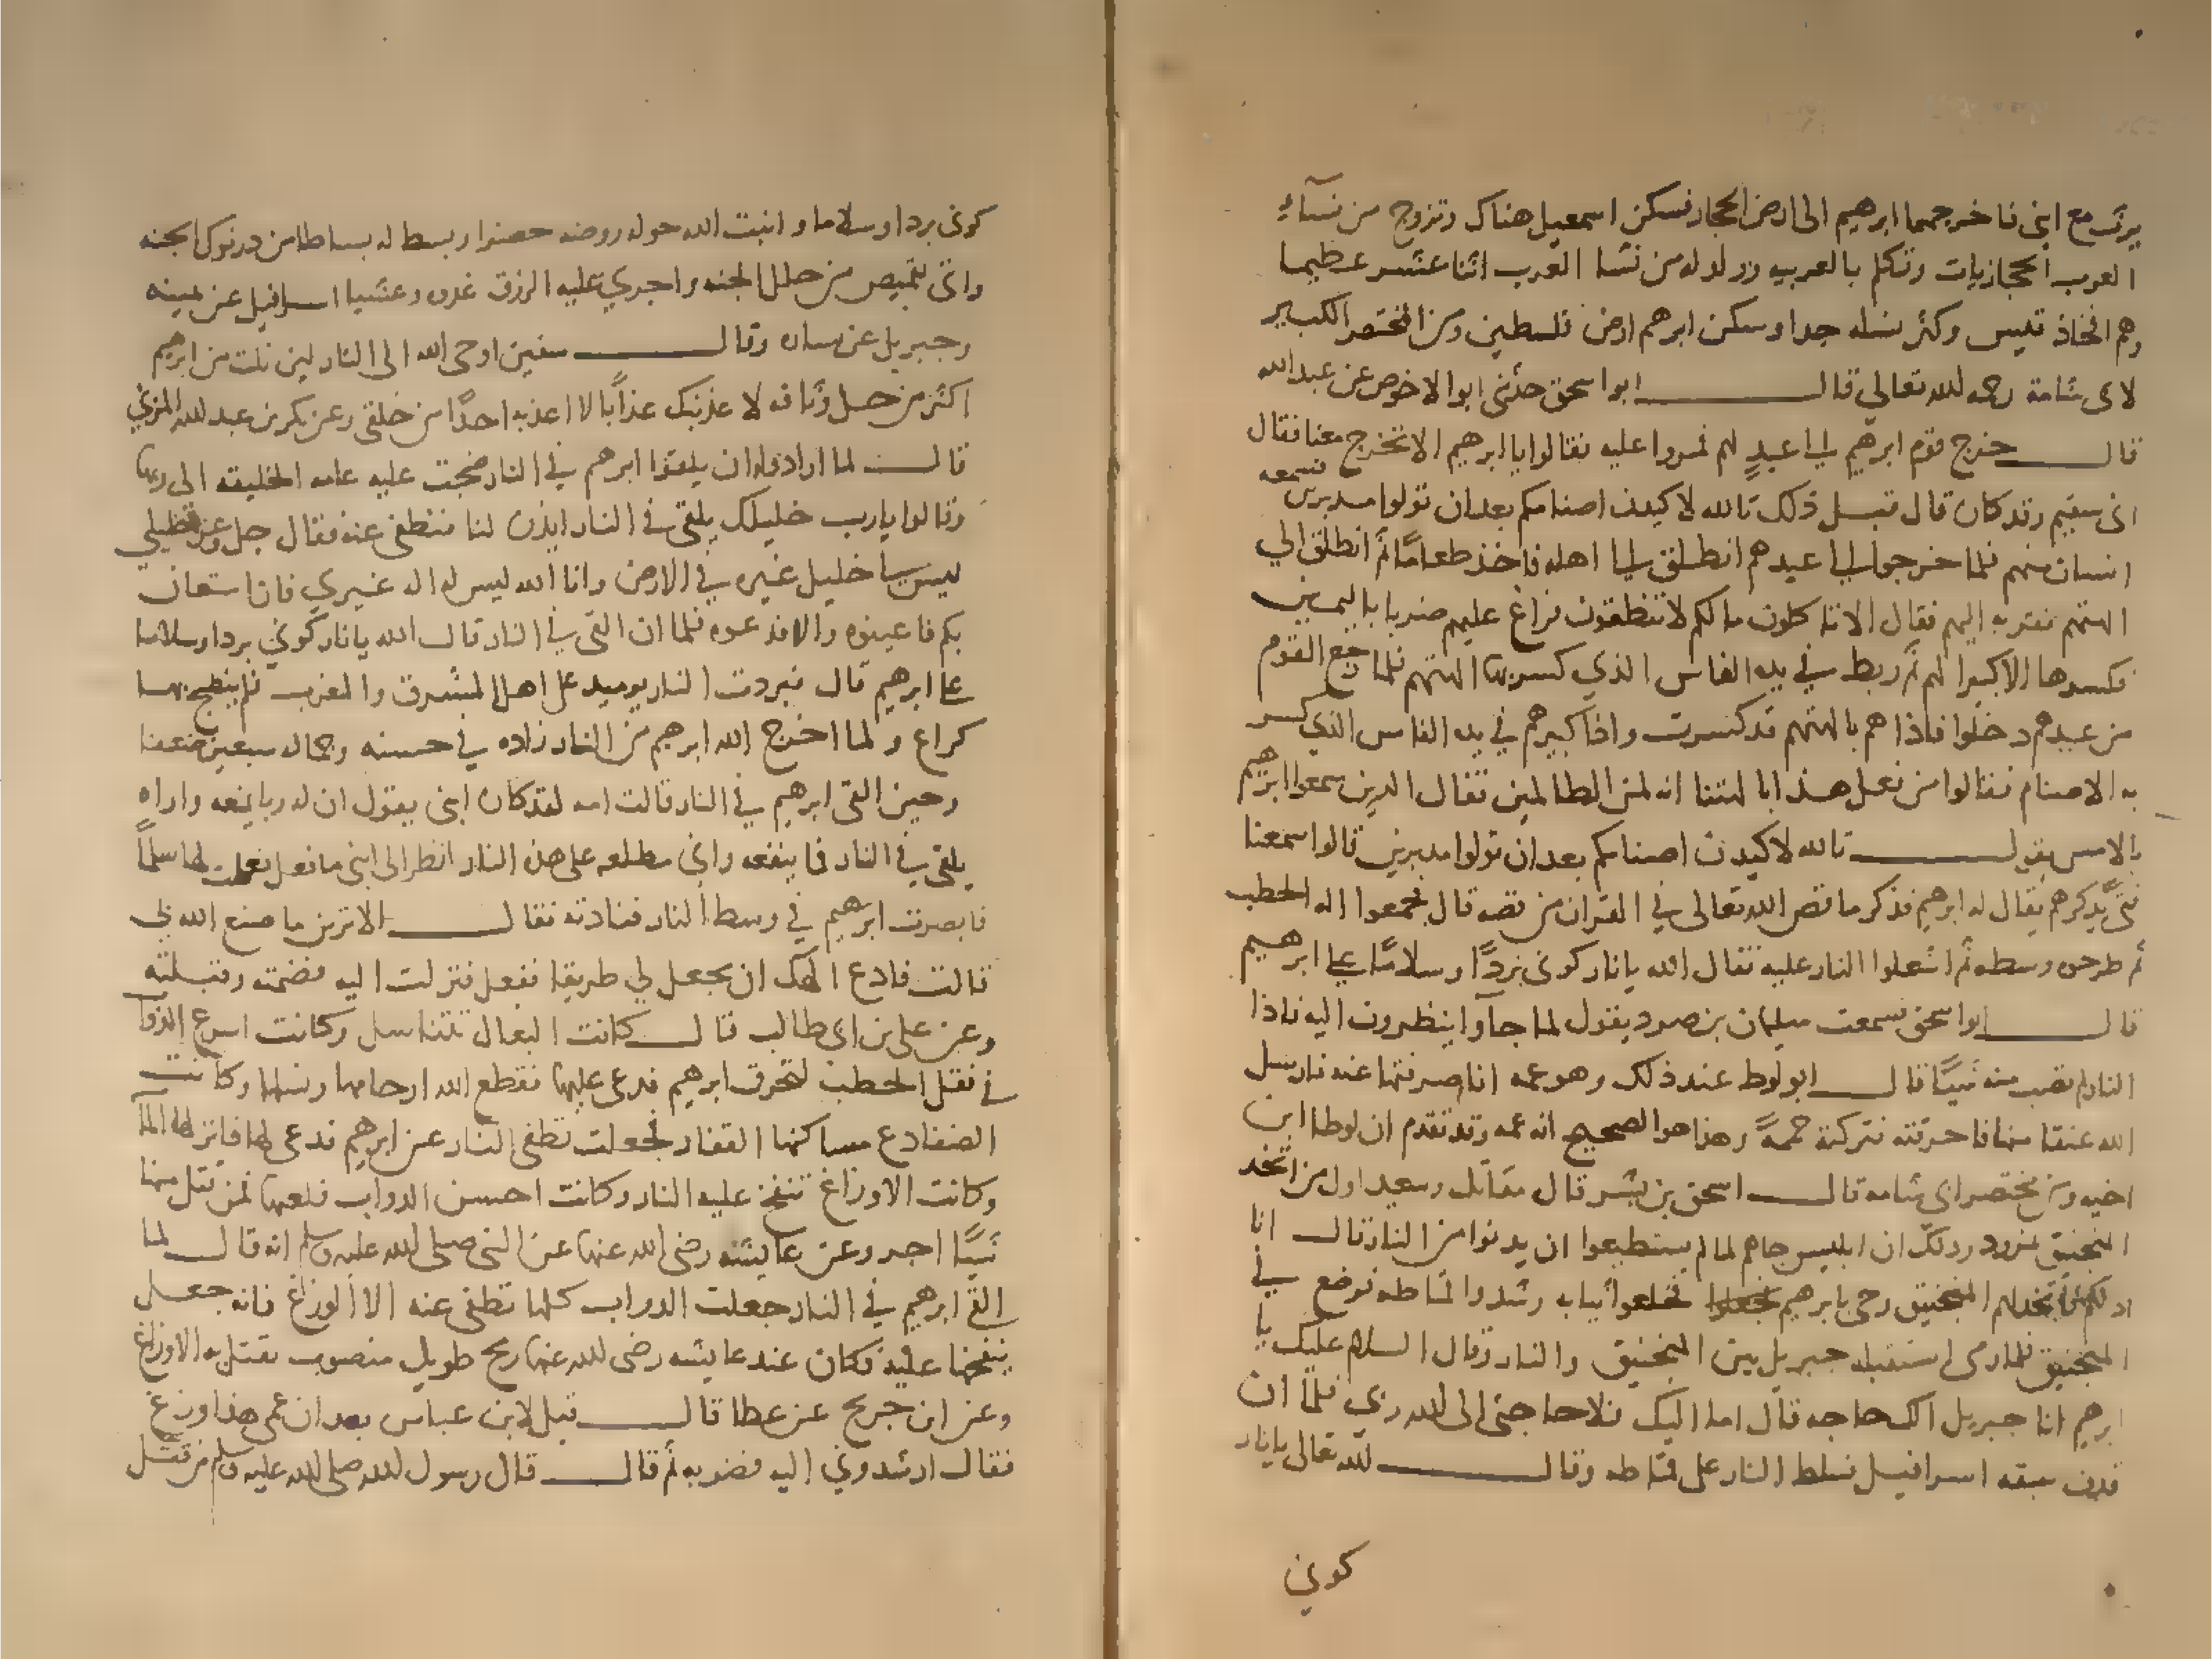 يرث مع ابنى فاخرجهما ابرهيم الى ارض الحجاز فسكن اسمعيل هناك وتزوج من نسآء
العرب الحجازيات وتكلم بالعربيه وولد له من نسا العرب اثنا عشر عظيما
وهم افخاذ قيس وكثر نسله جدا وسكن ابرهم ارض فلسطين ومن المختصر الكبير
لابى شامة رحمه الله تعالى قال ابوا سحق حدثنى ابوا الاخوص عن عبد الله
قال خرج قوم ابرهيم الى عيد لهم فمروا عليه فقالوا يا ابرهيم الا تخرج معنا فقال
انى سقيم وقد كان قال قبل ذلك تالله لاكيدن اصنامكم بعد ان تولوا مدبرين فسمعه
انسان منهم فلما خرجوا الى عيدهم انطلق الى اهله فاخذ طعاما ثم انطلق الي
الهتهم فقربه اليهم فقال الا تاكلون ما لكم لا تنطقون فراغ عليهم ضربا باليمين
فكسرها الا كبيرا لهم ثم ربط في يده الفاس الذي كسر بها الهتهم فلما رجع القوم
من عيدهم دخلوا فاذا هم بالهتهم قد كسرت واذا كبيرهم في يده الفاس الذي كسر
به الاصنام فقالوا من فعل هذا بالهتنا انه لمن الظالمين فقال الذين سمعوا ابرهيم
بالامس يقول تالله لاكيدن اصنامكم بعد ان تولوا مدبرين قالوا سمعنا
فتى يذكرهم يقال له ابرهيم فذكر ما قص الله تعالى في القران من قصه قال فجمعوا له الحطب
ثم طرحوه وسطه ثم اشعلوا النار عليه فقال الله يا نار كونى بردا وسلاما على ابرهيم
قال ابوا سحق فسمعت سليمان بن صرد يقول لما جآوا ينظرون اليه فاذا
النار لم تصب منه شيا قال ابو لوط عند ذلك وهو عمه انا صرفتها عنه فارسل
الله عنقا منها فاحرقته فتركته حممة وهذا هو الصحيح انه عمه وقد تقدم ان لوطا ابن
اخيه ومن مختصر ابى شامه قال اسحق بن بشر قال مقاتل وسعيد اول من اتخذ
المنجنيق نمرود وذلك ان ابليس جاهم لما لم يستطيعوا ان يدنوا من النار قال انا
ادلكم فاتخذ لهم المنجنيق وجى بابرهيم فخلعوا ثيابه وشدوا قماطه فوضع في
المنجنيق فلما رمى استقبله جبريل بين المنجنيق والنار وقال السلام عليك يا
ابرهيم انا جبريل الك حاجه قال اما اليك فلا حاجتى الى الله ربي فلما ان
قذف سبقه اسرافيل فسلط النار على قماطه وقال الله تعالى يا نار
كوني
كونى بردا وسلاما وانبت الله حوله روضه خضرا وبسط له بساطا من درنوك الجنه
واتى بقميص من حلل الجنه واجري عليه الرزق غدوه وعشيا اسرافيل عن يمينه
وجبريل عن يساره وقال سفين اوحى الله الى النار لين نلت من ابرهيم
اكثر من حل وثاقه لاعذبنك عذابا لا اعذبه احدا من خلقى وعن بكر بن عبد الله المزني
قال لما ارادوا ان يلقوا ابرهم في النار ضجت عليه عامه الخليقه الى ربها
وقالوا يارب خليلك يلقى في النار ايذن لنا فنطفى عنه فقال جل وعز خليلي
ليس لى خليل غيره في الارض وانا الله ليس له اله غيري فان استعان
بكم فاعينوه والا فدعوه فلما ان القى في النار قال الله يا نار كوني بردا وسلاما
على ابرهيم قال فبردت النار يوميذ على اهل المشرق والمغرب فلم ينضج بها
كراع ولما اخرج الله ابرهيم من النار زاده في حسنه وجماله سبعين ضعفا
وحين القى ابرهيم في النار قالت امه لقد كان ابنى يقول ان له ربا يمنعه واراه
يلقى في النار فما ينفعه وانى مطلعه على هذه النار انظر الى ابنى ما فعل فعملت لها سلما
فابصرت ابرهيم في وسط النار فنادته فقال الا ترين ما صنع الله بي
قالت فادع الهك ان يجعل لي طريقا ففعل فنزلت اليه فضمته وقبلته
وعن على بن ابى طالب قال كانت البغال تتناسل وكانت اسرع الدواب
في نقل الحطب لتحرق ابرهيم فدعى عليها فقطع الله ارحامها ونسلها وكانت
الضفادع مساكنها القفار فجعلت تطفى النار عن ابرهيم فدعى لها فانزلها المآ
وكانت الاوزاغ تنفخ عليه النار وكانت احسن الدواب فلعنها فمن قتل منها
شيا اجر وعن عايشه رضى الله عنها عن النبى صلى الله عليه وسلم انه قال لما
القى ابرهيم في النار جعلت الدواب كلها تطفى عنه الا الوزاغ فانه جعل
ينفخها عليه فكان عند عايشه رضى الله عنها رمح طويل منصوب يقتل به الاوزاغ
وعن ابن جريج عن عطا قال قيل لابن عباس بعد ان عمى هذا وزغ
فقال ارشدوني اليه فضربه ثم قال قال رسول الله صلى الله عليه وسلم من قتل